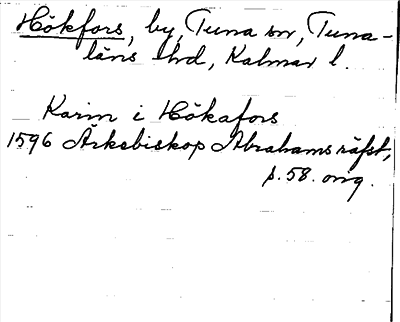 Hökfors, by, Tuna sn, Tuna-
läns hd, Kalmar l.
Karin i Hökafors
1596 Ärkebiskop Abrahams räfst,
s. 58. orig.